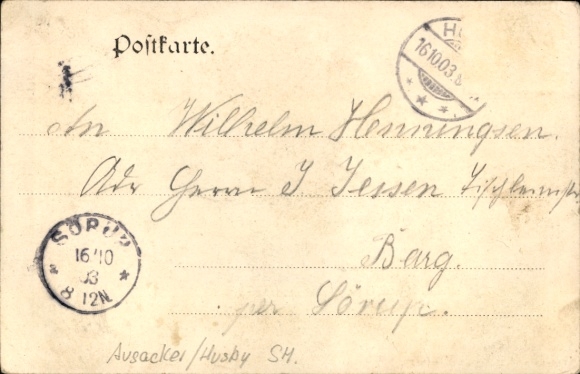 Postkarte.
16.10.03
An Wilhelm Hennungsen.
Adr Herrn J Jessen Tischlermstr
SÖRUP
16/10
03
8 12N
Barg.
per Sörup.
Ausacker/Husby SH.